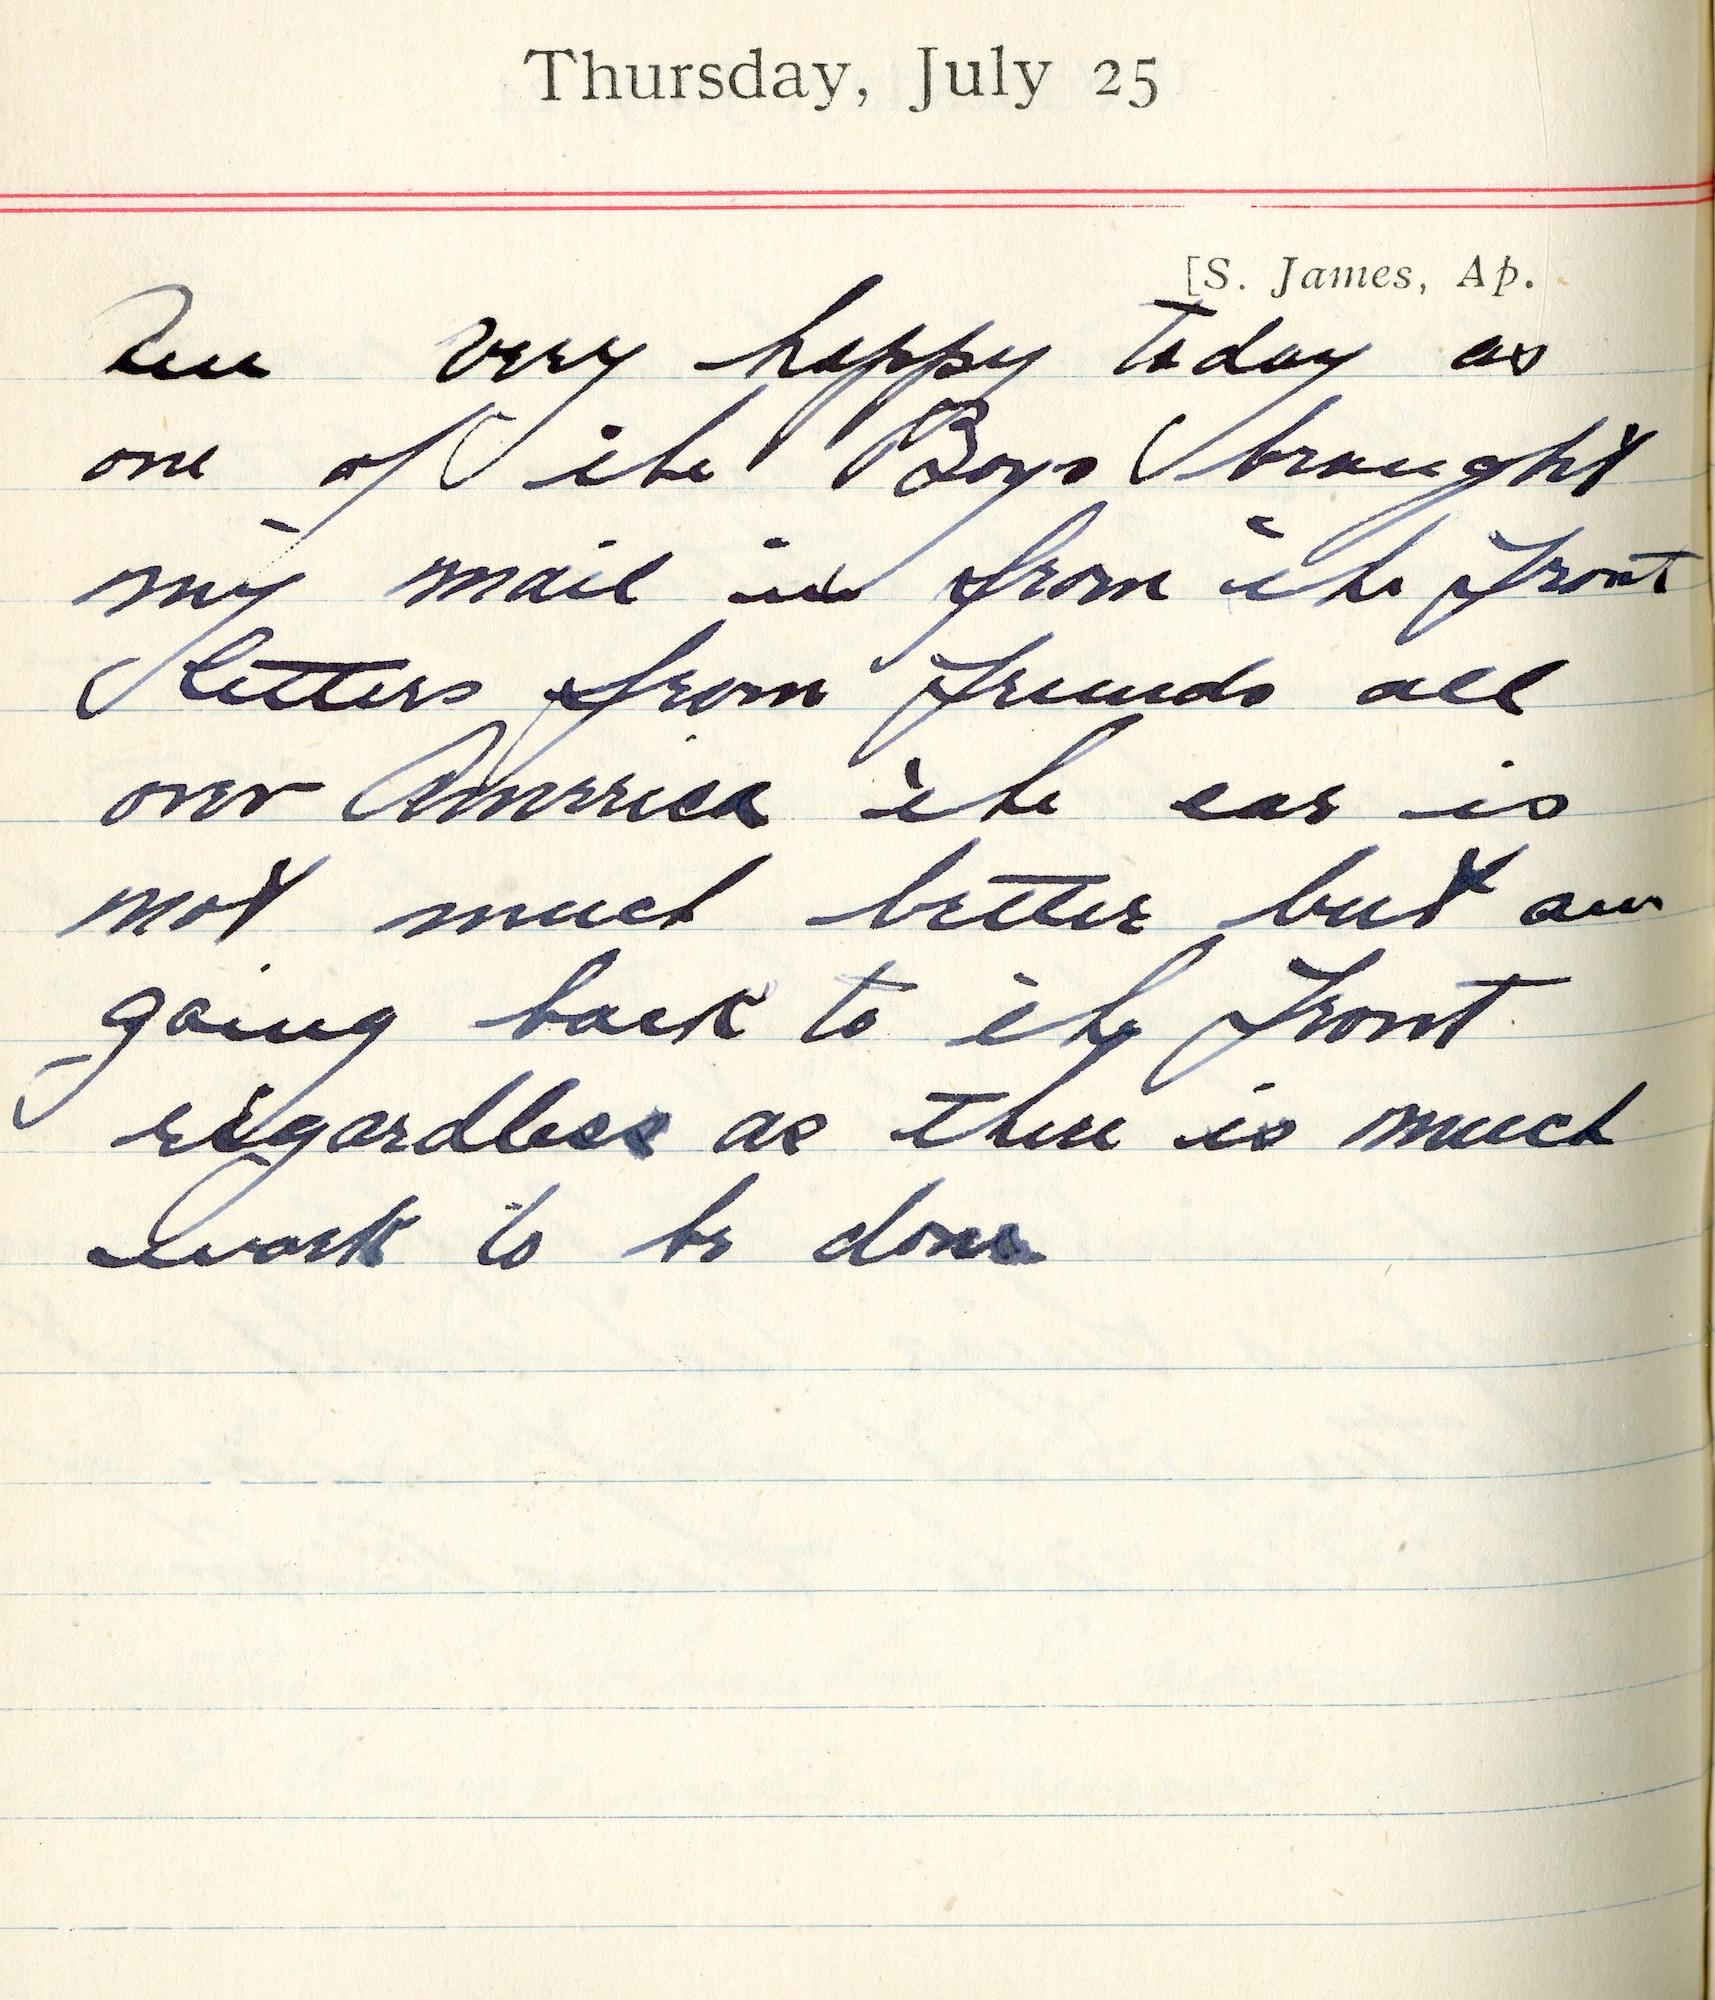 Thursday, July 25
[S. James, Ap.
Am very happy today as
one of the Boys brought
my mail in from the front
letters from friends all
over America the ear is
not much better but am
going back to the front
regardless as there is much
work to be done